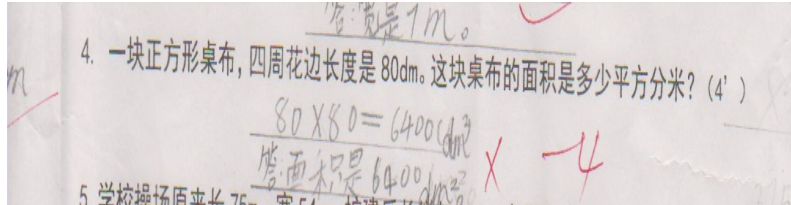 答:宽是7m。
m
4. 一块正方形桌布,四周花边长度是80dm。这块桌布的面积是多少平方分米?(4')
80×80=6400(dm²)
答:面积是6400dm² × -4
5.学校操场原来长75m,宽54